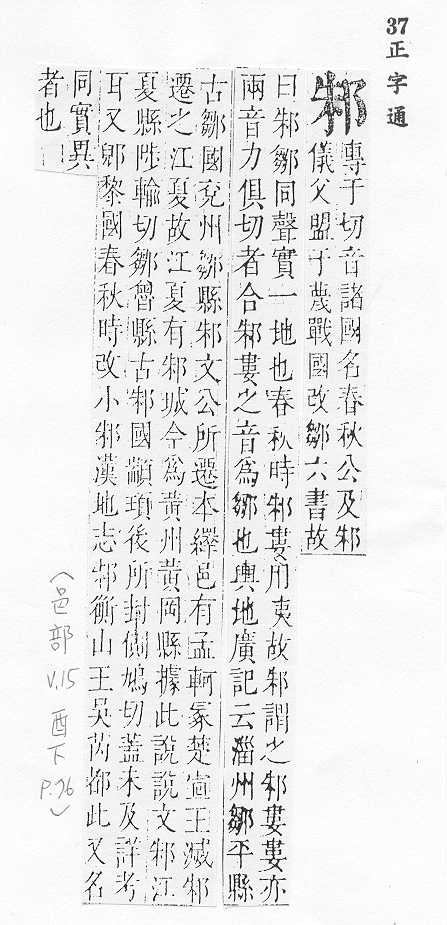 37 正字通
邾
專于切音諸國名春秋公及邾
儀父盟于蔑戰國改鄒六書故
曰邾鄒同聲實一地也春秋時邾婁用夷故邾謂之邾婁婁亦
兩音力俱切者合邾婁之音爲鄒也輿地廣記云淄州鄒平縣
古鄒國兗州鄒縣邾文公所遷本繹邑有孟軻冢楚宣王滅邾
遷之江夏故江夏有邾城今爲黃州黃岡縣據此說說文邾江
夏縣陟輸切鄒魯縣古邾國顓頊後所封側鳩切蓋未及詳考
耳又郳黎國春秋時改小邾漢地志邾衡山王吳芮都此又名
同實異
者也
(邑部 V.15 酉下 P.76)